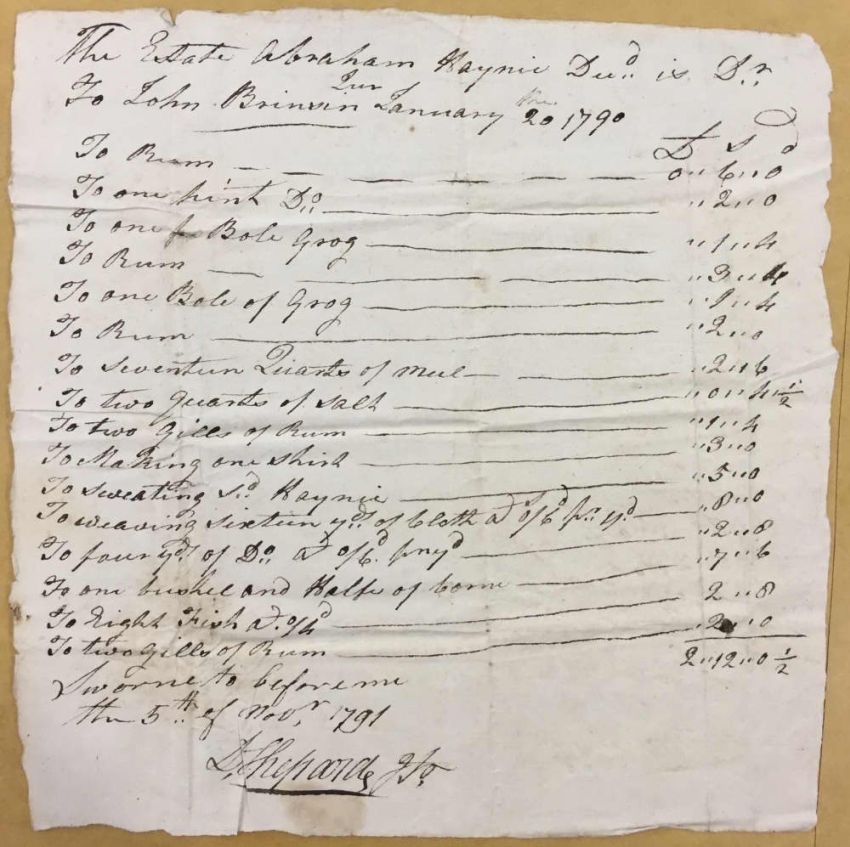 The Estate Abraham Haynie Decd is Dr
To John Brinsin Junr January the 20 1790
£ S d
To Rum 0 " 6 " 0
To one pint Do " 2 " 0
To one Bole Grog " 1 " 4
To Rum " 3 " 4
To one Bole of Grog " 1 " 4
To Rum " 2 " 0
To seventeen Quarts of meel " 2 " 6
To two quarts of salt " 0 " 4 " 1/2
To two Gills of Rum " 1 " 4
To Making one shirt " 3 " 0
To sweating Sd Haynie " 5 " 0
To weaving sixteen yds of Cloth at 0/6d pr yd " 8 " 0
To four yds of Do at 0/6d pr yd " 2 " 8
To one bushel and Halfe of Corne " 7 " 6
To Eight Fish at 0/4d 2 " 8
To two Gills of Rum " 2 " 0
2 " 12 " 0 1/2
Sworne to before me
the 5th of Novr 1791
D. Shepard